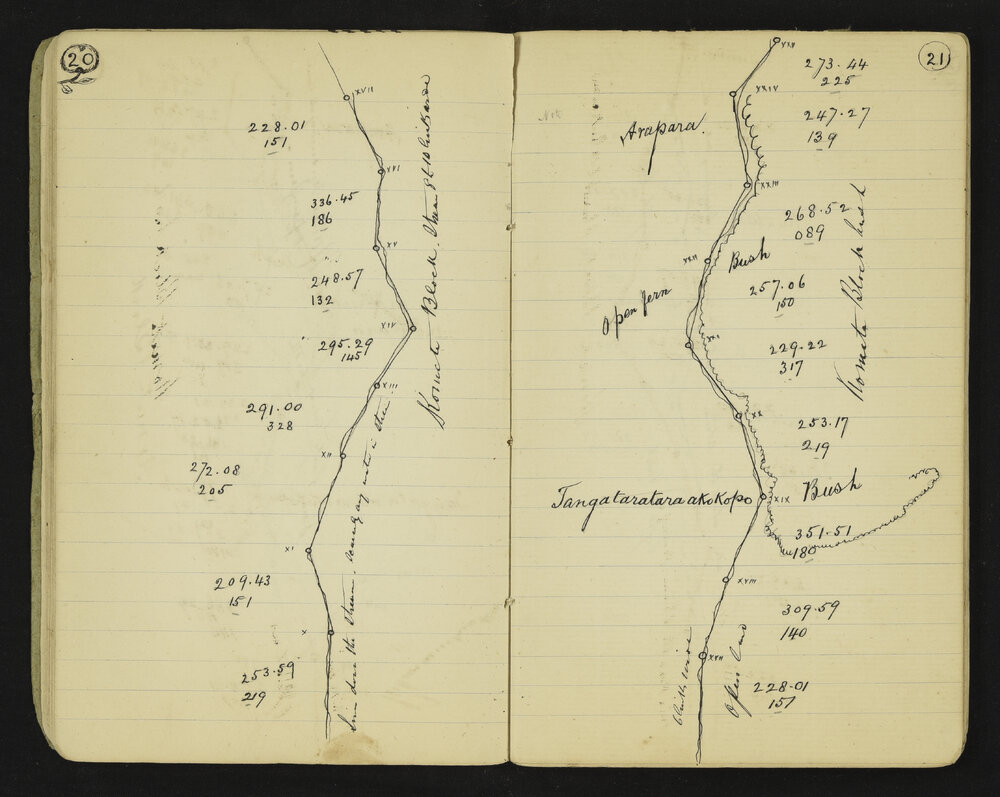 20
XVII
228.01
151
XVI
336.45
186
XV
248.57
132
XIV
295.29
145
XIII
291.00
328
XII
272.08
205
XI
209.43
151
X
253.59
219
Komata Block
down the Stream
21
XXV
273.44
225
XXIV
247.27
139
Arapara.
XXIII
268.52
089
XXII
Bush
Open fern
257.06
150
Komata Block bush
XXI
229.22
317
XX
253.17
219
Tangataratara akokopo
XIX
Bush
351.51
180
XVIII
309.59
140
XVII
Open land
228.01
151